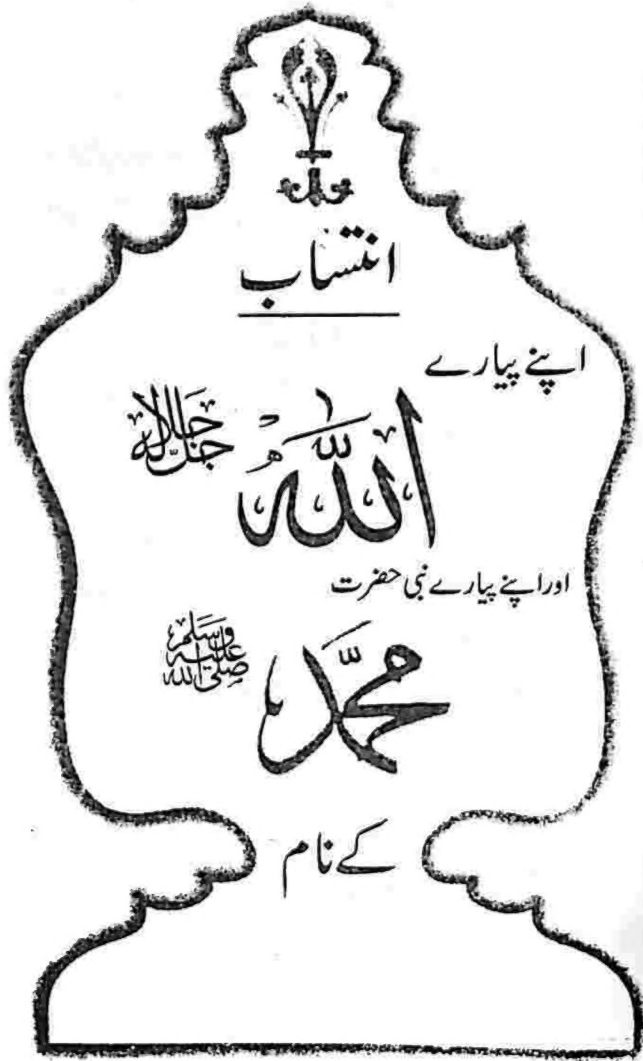 انتساب
اپنے پیارے
اللہ جل جلالہ
اور اپنے پیارے نبی حضرت
محمد صلی اللہ علیہ وسلم
کے نام